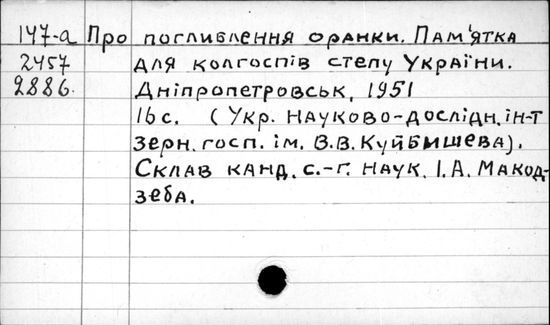 147-а Про поглиблення оранки. Пам'ятка
2457 для колгоспів степу України.
2886. Дніпропетровськ, 1951
16 с. (Укр. науково-дослідн. ін-т
зерн. госп. ім. В.В. Куйбишева).
Склав канд. с.-г. наук. І.А. Макод-
зеба.